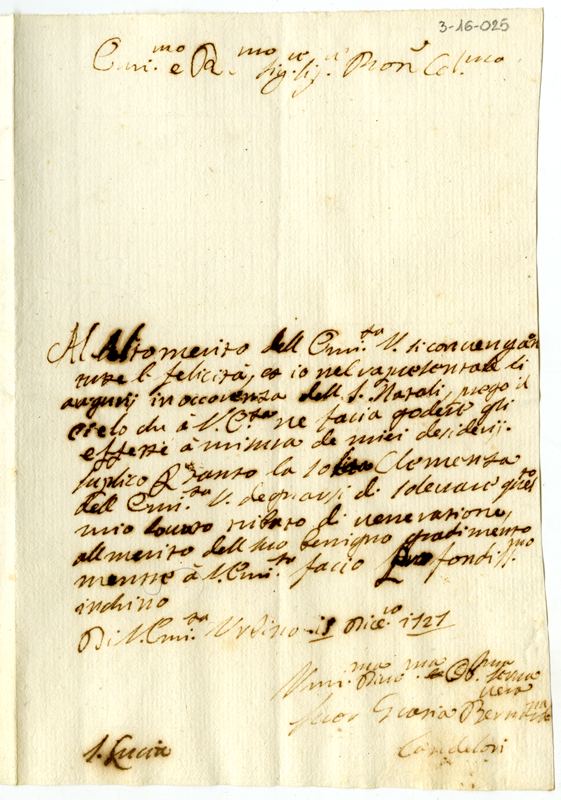 3-16-025
Emi.mo e R.mo Sig.re Sig.re Pron. Col.mo
Al Alto merito dell Emi.za V. si convengan
tutte le felicità, et io nel rapresentarle li
augurij in occorenza dell S. Natali, prego il
cielo che à V. E.za ne facia godere gli
effetti à misura de miei desiderij.
suplico tanto la solita Clemenza
dell Emi.za V. degnarsi di solevare questo
mio tributo di veneratione,
all merito dell suo benigno gradimento
mentre à V. Emi.za facio profondiss.mo
inchino
Di V. Emi.za Urbino 15 Dice. 1721
Umi.ma Div.ma et Ob.ma Serva
vera
Suor Maria
Candelori
S. Lucia